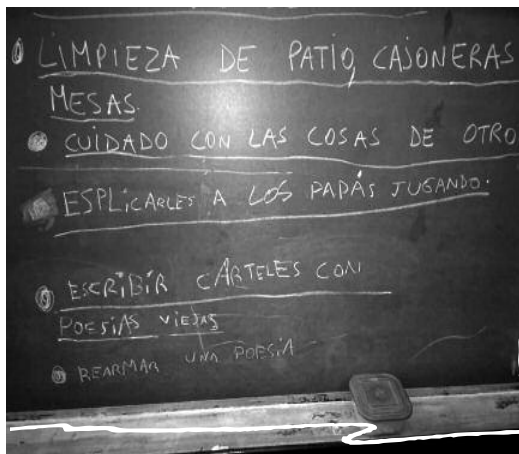 LIMPIEZA DE PATIO, CAJONERAS
MESAS.
CUIDADO CON LAS COSAS DE OTRO
ESPLICARLES A LOS PAPÁS JUGANDO.
ESCRIBIR CARTELES CON
POESIAS VIEJAS
REARMAR UNA POESIA